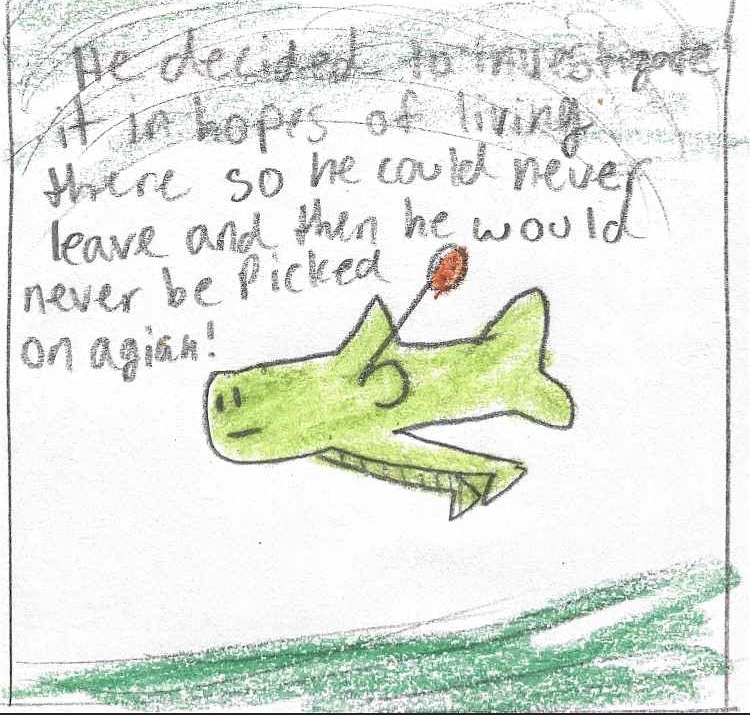 He decided to investigate
it in hopes of living
there so he could never
leave and then he would
never be Picked
on agian!